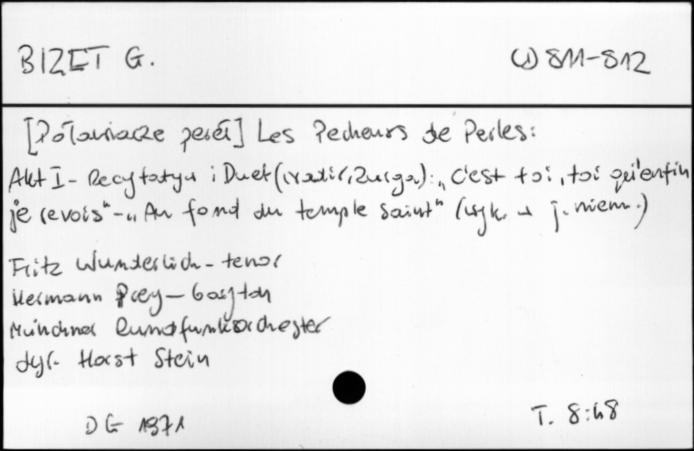 BIZET G. CD 811-812
[Poławiacze pereł] Les Pecheurs de Perles:
Akt I - Recytatyw i Duet (Nadir, Zurga): „C'est toi, toi qu'enfin
je revois" - „Au fond du temple saint" (wyk. w j. niem.)
Fritz Wunderlich - tenor
Hermann Prey - baryton
Münchner Rundfunkorchester
dyr. Horst Stein
DG 1971 T. 8:48